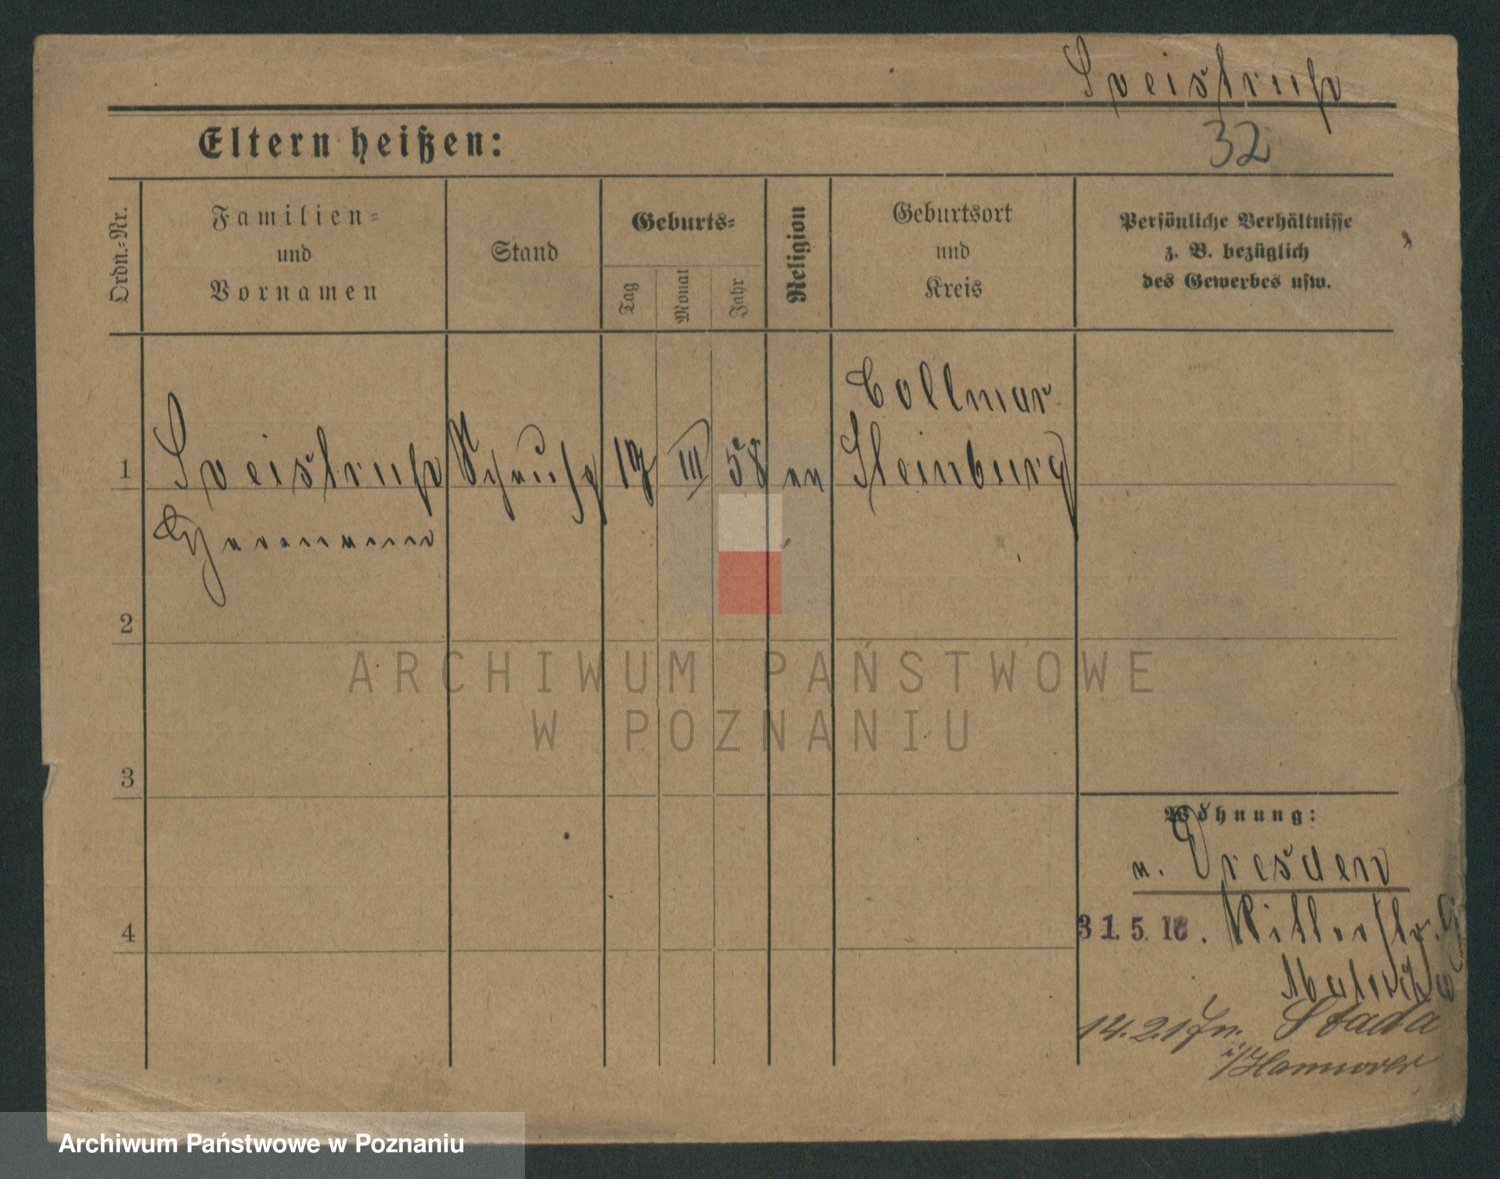 Speistrup
32
Eltern heißen:
Ordn.=Nr.
Familien=
und
Vornamen
Stand
Geburts=
Tag
Monat
Jahr
Religion
Geburtsort
und
Kreis
Persönliche Verhältnisse
z. B. bezüglich
des Gewerbes usw.
Collmar
1 III 58 Steinburg
Hermann
2
3
4
Wohnung:
n. Dresden
31.5.16.
14.2.17 n. Stada
i/Hannover
ARCHIWUM PAŃSTWOWE
W POZNANIU
Archiwum Państwowe w Poznaniu